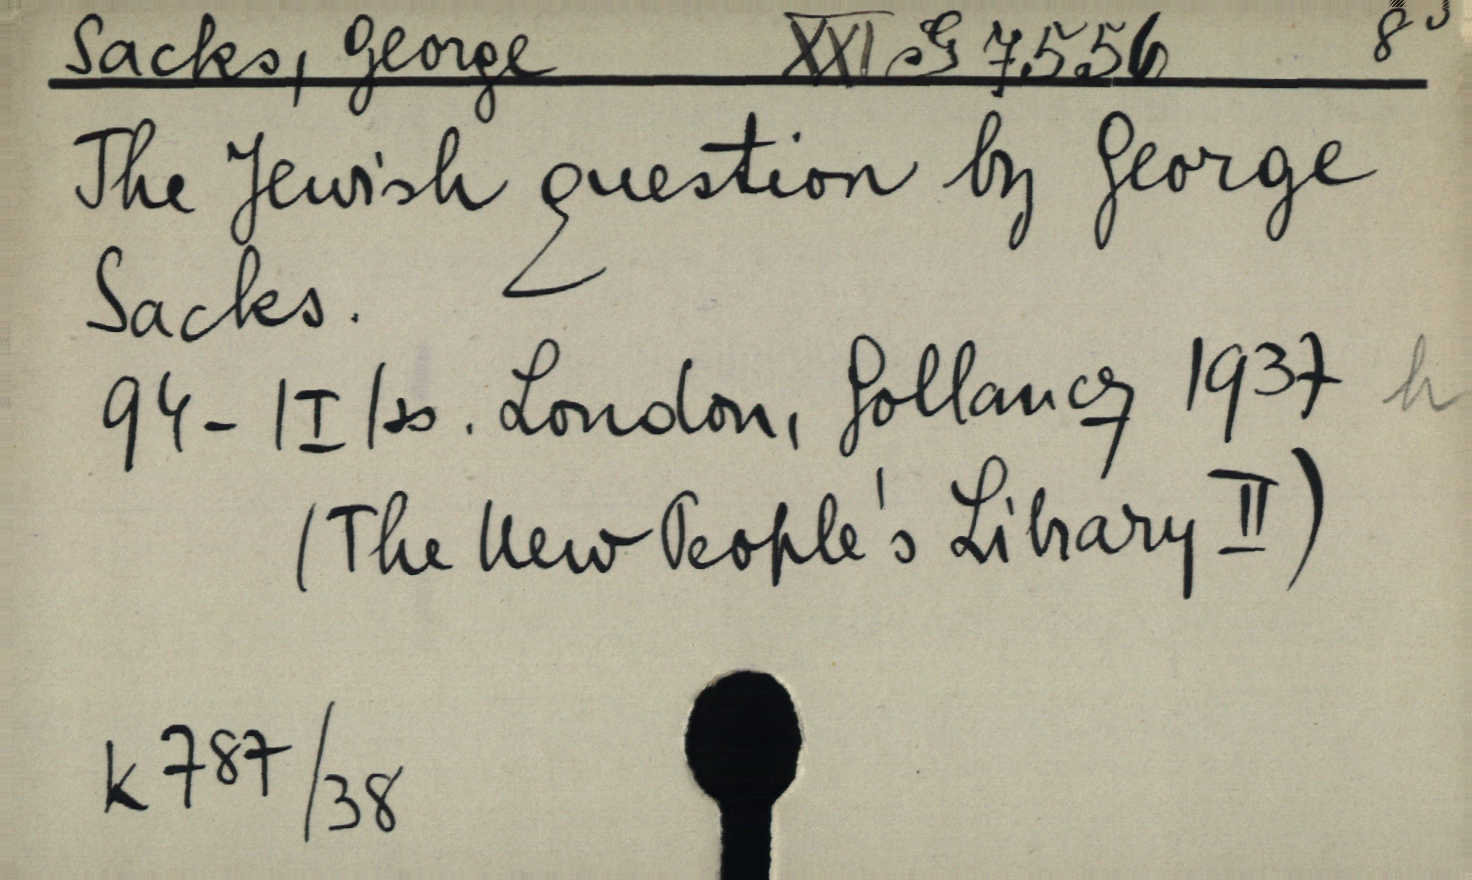 Sacks, George XXI G 7.556 8°
The Jewish question by George
Sacks.
94 - |I| s. London, Gollancz 1937 h
(The New People's Library II)
k 787/38